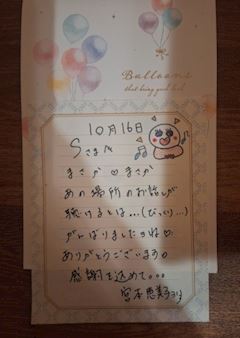 Balloons
that bring good luck
10月16日
Sさま
まさか♡まさか
あの場所のお話しが
聴けるとは…(びっくり…)
がんばりましたね♡
ありがとうございます
感謝を込めて。。。
宮本恵美より